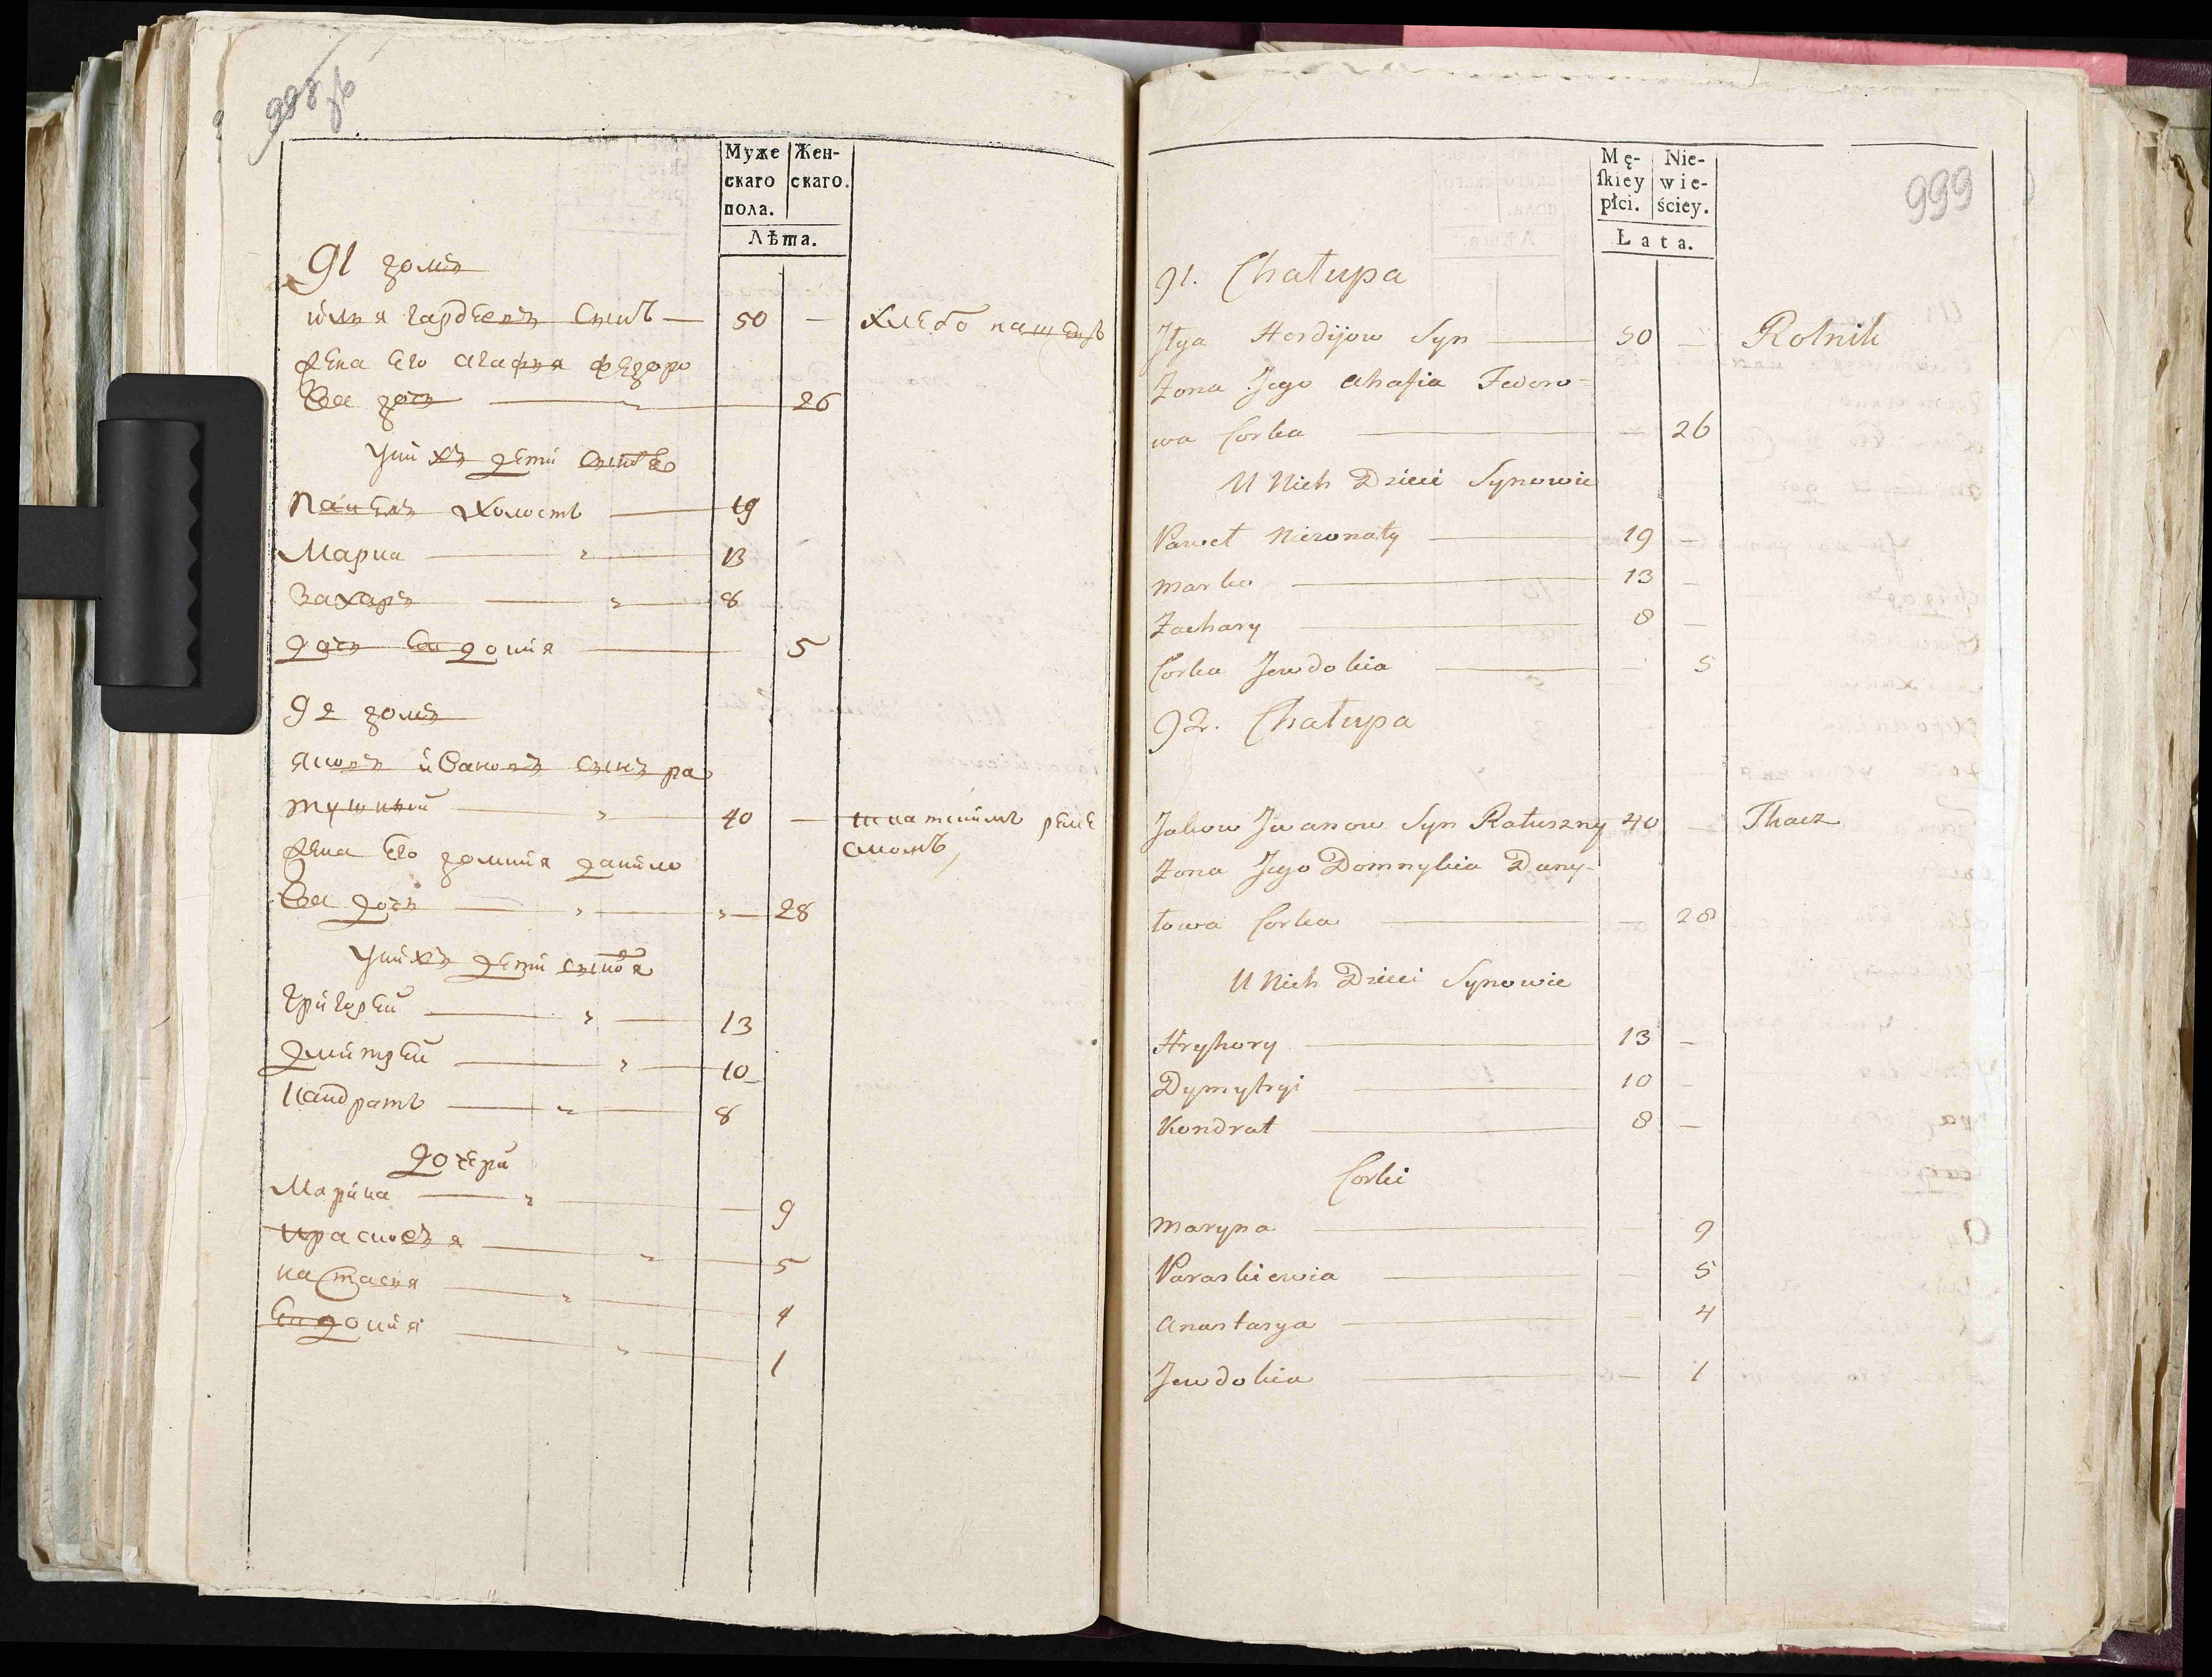 998 об
Муже
скаго
пола.
Жен-
скаго.
Лѣта.
91 домъ
илья гардеевъ синъ — 50 — хлебо пашецъ
жена Его агафья федоро
ва дочъ — 26
у нихъ дети синовя
павелъ холостъ — 19
Марка — 13
Захаръ — 8
дочъ Евдокия — 5
92 домъ
яковъ ивановъ синъ ра
тушний — 40 —
ремесломъ
жена Его домникия данило
ва дочъ — 28
у нихъ дети синовя
григорей — 13
дмитрей — 10
кандратъ — 8
дочери
Марина — 9
5
настасья — 4
Евдокия — 1
999
Mę-
ſkiey
płci.
Nie-
wie-
ściey.
Lata.
91. Chałupa
Jłya Hordijow Syn — 50 — Rolnik
Zona Jego Ahafia Fedoro-
wa Corka — 26
U Nich Dzieci Synowie
Paweł Niezonaty — 19 —
Marko — 13 —
Zachary — 8 —
Corka Jewdokia — 5
92. Chałupa
Jakow Jwanow Syn Ratuszny 40 — Tkacz
Zona Jego Domnykia Dany-
łowa Corka — 28
U Nich Dzieci Synowie
Hryhory — 13 —
Dymytryi — 10 —
Kondrat — 8 —
Corki
Maryna — 9
Paraskiewia — 5
Anastasya — 4
Jewdokia — 1